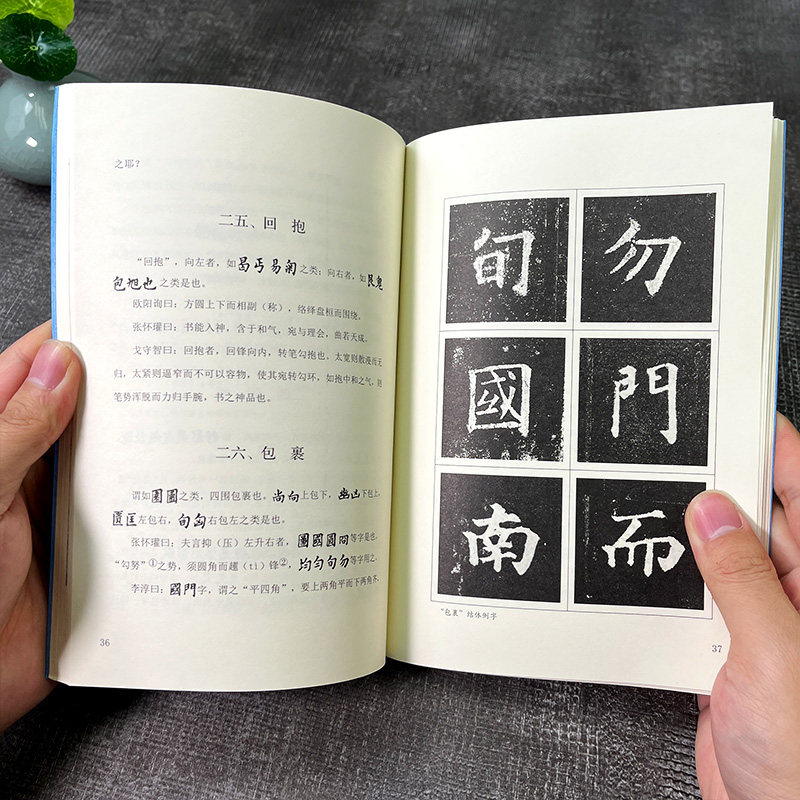 之耶？
二五、回 抱
“回抱”，向左者，如曷丐易菊之类；向右者，如艮鬼
包旭也之类是也。
欧阳询曰：方圆上下而相副（称），络绎盘桓而围绕。
张怀瓘曰：书能入神，含于和气，宛与理会，曲若天成。
戈守智曰：回抱者，回锋向内，转笔勾抱也。太宽则散漫而无
归，太紧则逼窄而不可以容物，使其宛转勾环，如抱冲和之气，则
笔势浑脱而力归手腕，书之神品也。
二六、包 裹
谓如園圃之类，四围包裹也。尚向上包下，幽凶下包上，
匱匡左包右，旬匈右包左之类是也。
张怀瓘曰：夫言抑（压）左升右者，圖國圓冏等字是也。
“勾努”①之势，须圆角而趯（tì）锋②，均匀句勿等字用之。
李淳曰：國門字，谓之“平四角”，要上两角平而下两角齐，
36
旬 勿
國 門
南 而
“包裹”结体例字
37